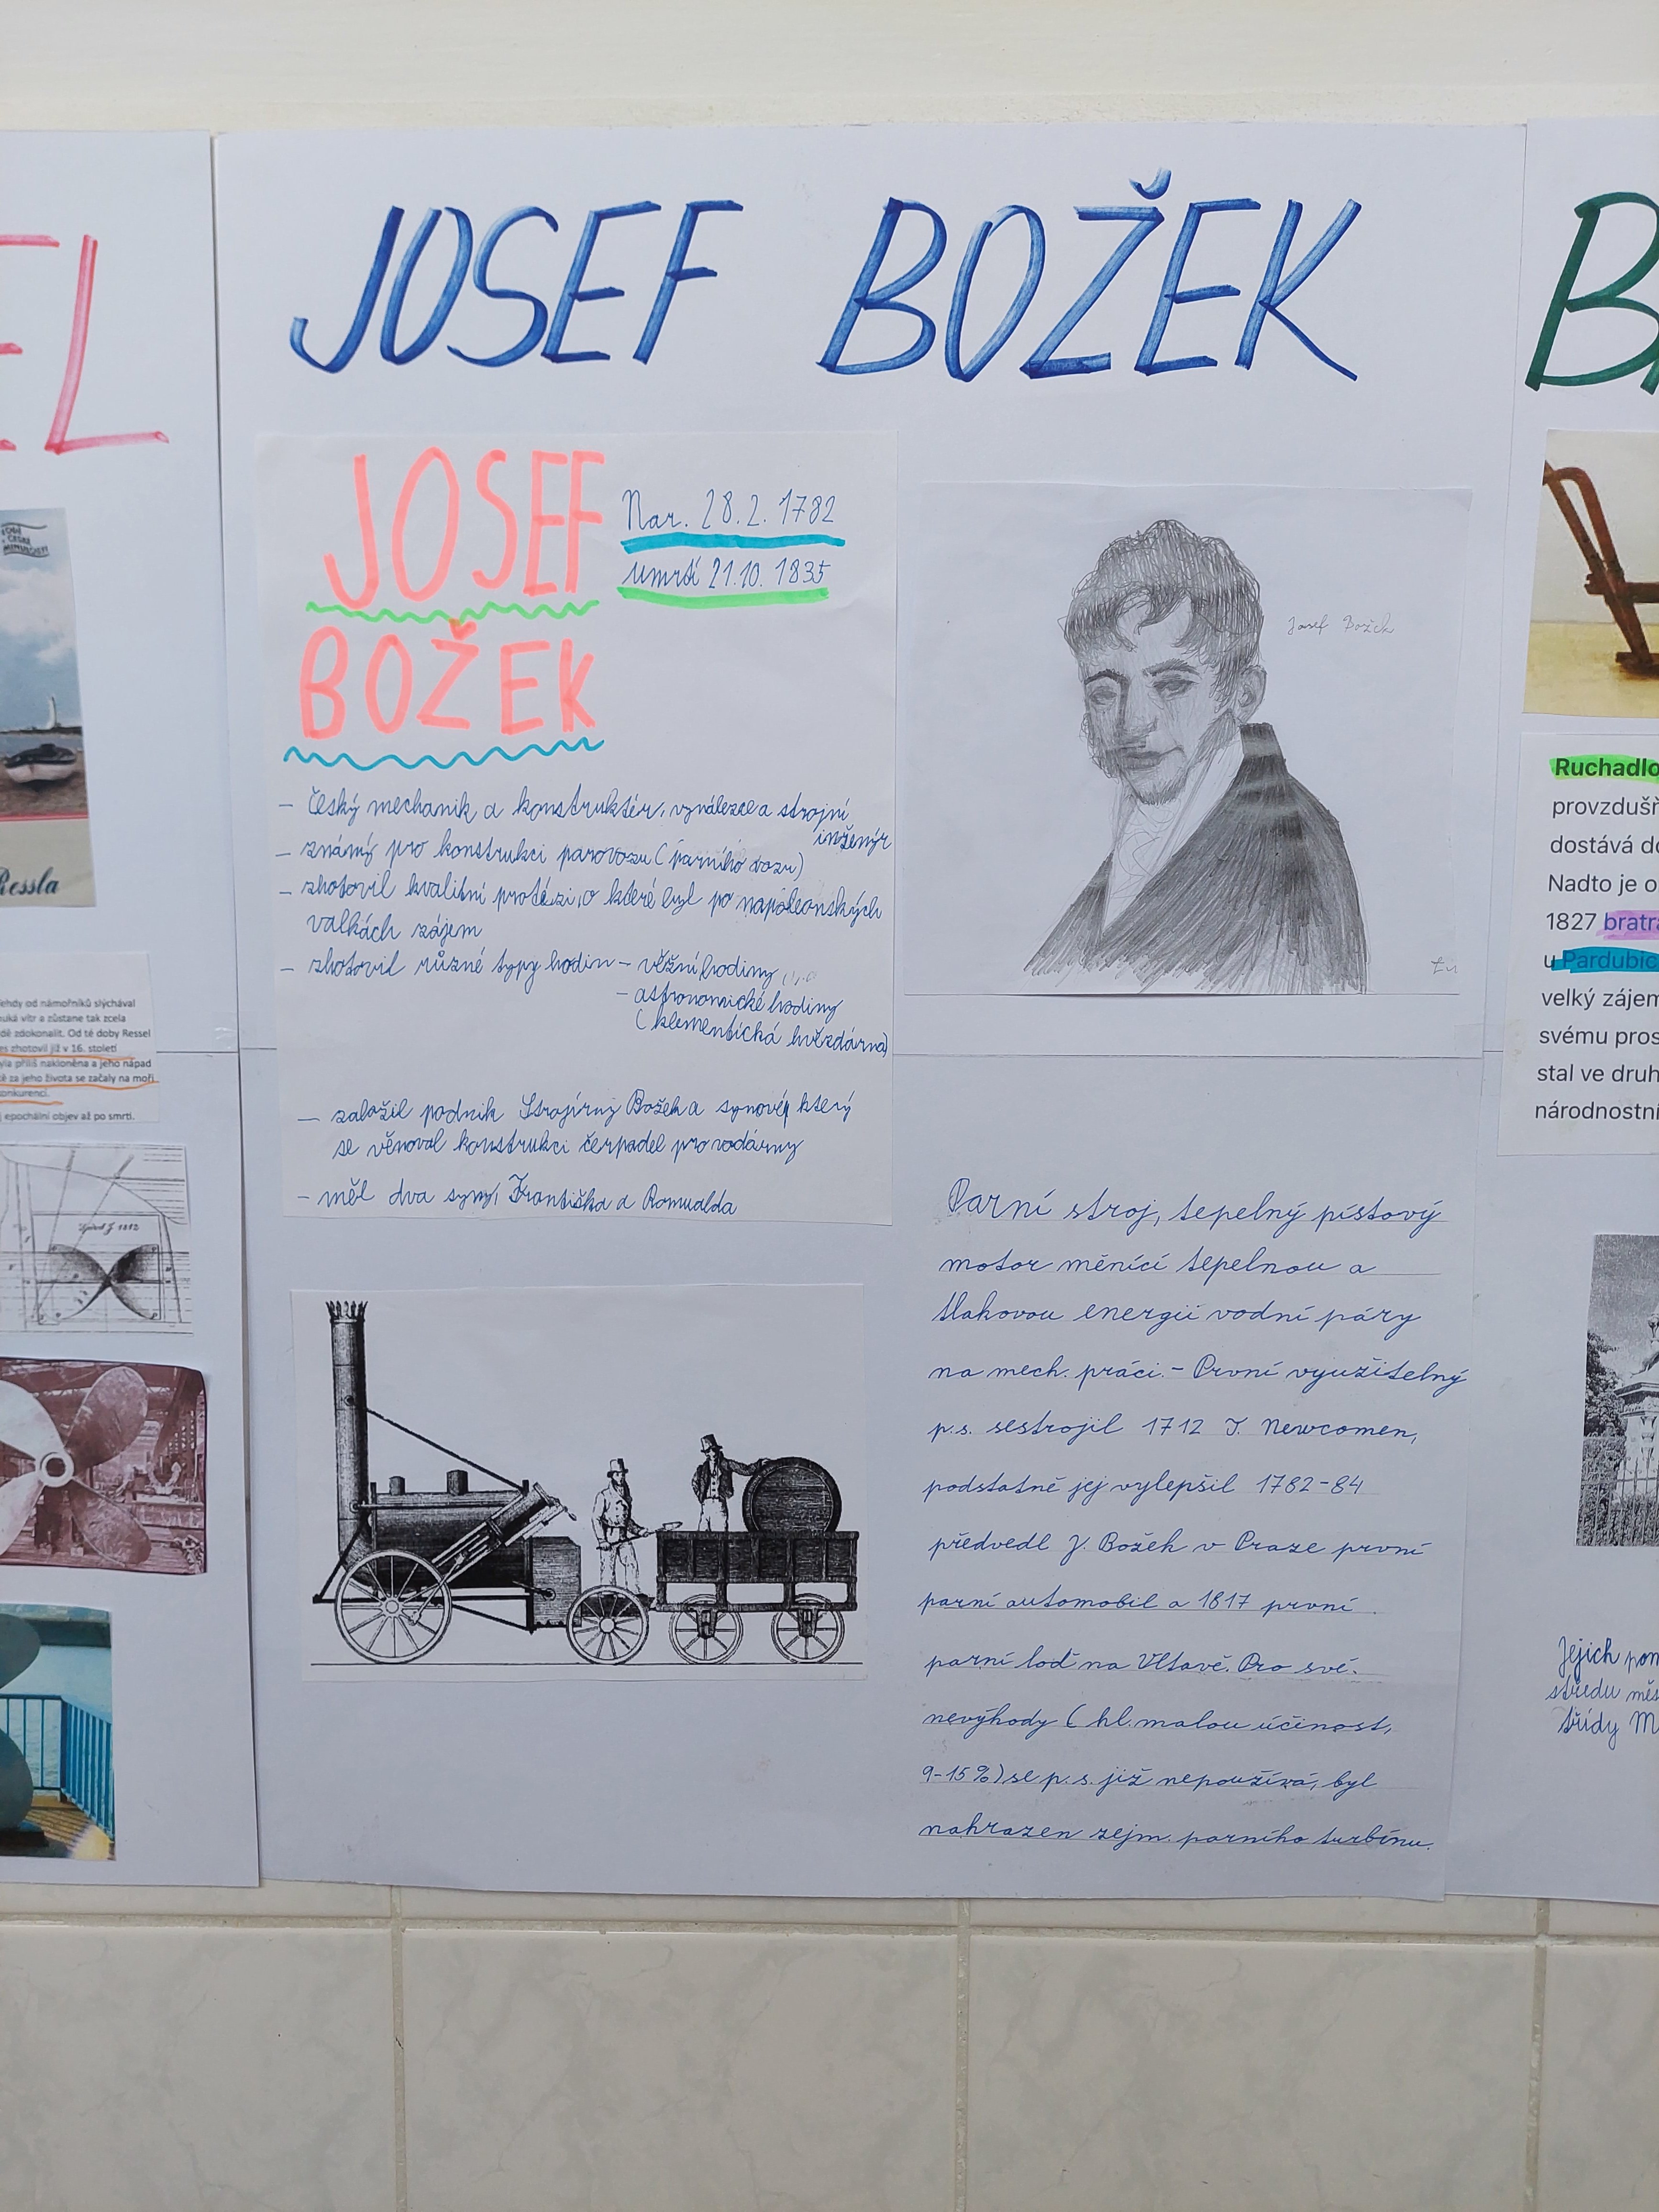 JOSEF BOŽEK
EL
B
JOSEF
BOŽEK
Nar. 28.2. 1782
úmrtí 21.10. 1835
- Český mechanik a konstruktér, vynálezce a strojní
inženýr
- známý pro konstrukci parovozu (parního vozu)
- zhotovil kvalitní protézi, o které byl po napoleonských
válkách zájem
- zhotovil různé typy hodin - věžní hodiny
- astronomické hodiny
(klementická hvězdárna)
- založil podnik Strojírny Božek a synové, který
se věnoval konstrukci čerpadel pro vodárny
- měl dva syny, Františka a Romualda
Josef Božek
Parní stroj, tepelný pístový
motor měnící tepelnou a
tlakovou energii vodní páry
na mech. práci. - První využitelný
p.s. sestrojil 1712 T. Newcomen,
podstatně jej vylepšil 1782-84
předvedl J. Božek v Praze první
parní automobil a 1817 první
parní loď na Vltavě. Pro své
nevýhody (hl. malou účinost,
9-15%) se p.s. již nepoužívá, byl
nahrazen zejm. parního turbínu.
Ressla
ehdy od námořníků slýchával
uká vítr a zůstane tak zcela
dě zdokonalit. Od té doby Ressel
es zhotovil již v 16. století
yla příliš nakloněna a jeho nápad
ě za jeho života se začaly na moři
onkurencí.
j epochální objev až po smrti.
Ruchadlo
provzdušň
dostává do
Nadto je o
1827 bratra
u Pardubic
velký zájem
svému pros
stal ve druh
národnostní
Jejich pom
středu měs
třídy M